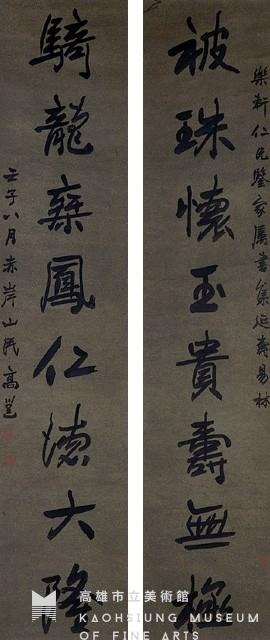 樂軒仁兄鑒家屬書集延壽易林
被珠懷玉貴壽無極
騎龍乘鳳仁德大隆
壬子八月赤岸山民高邕
高雄市立美術館
KAOHSIUNG MUSEUM
OF FINE ARTS